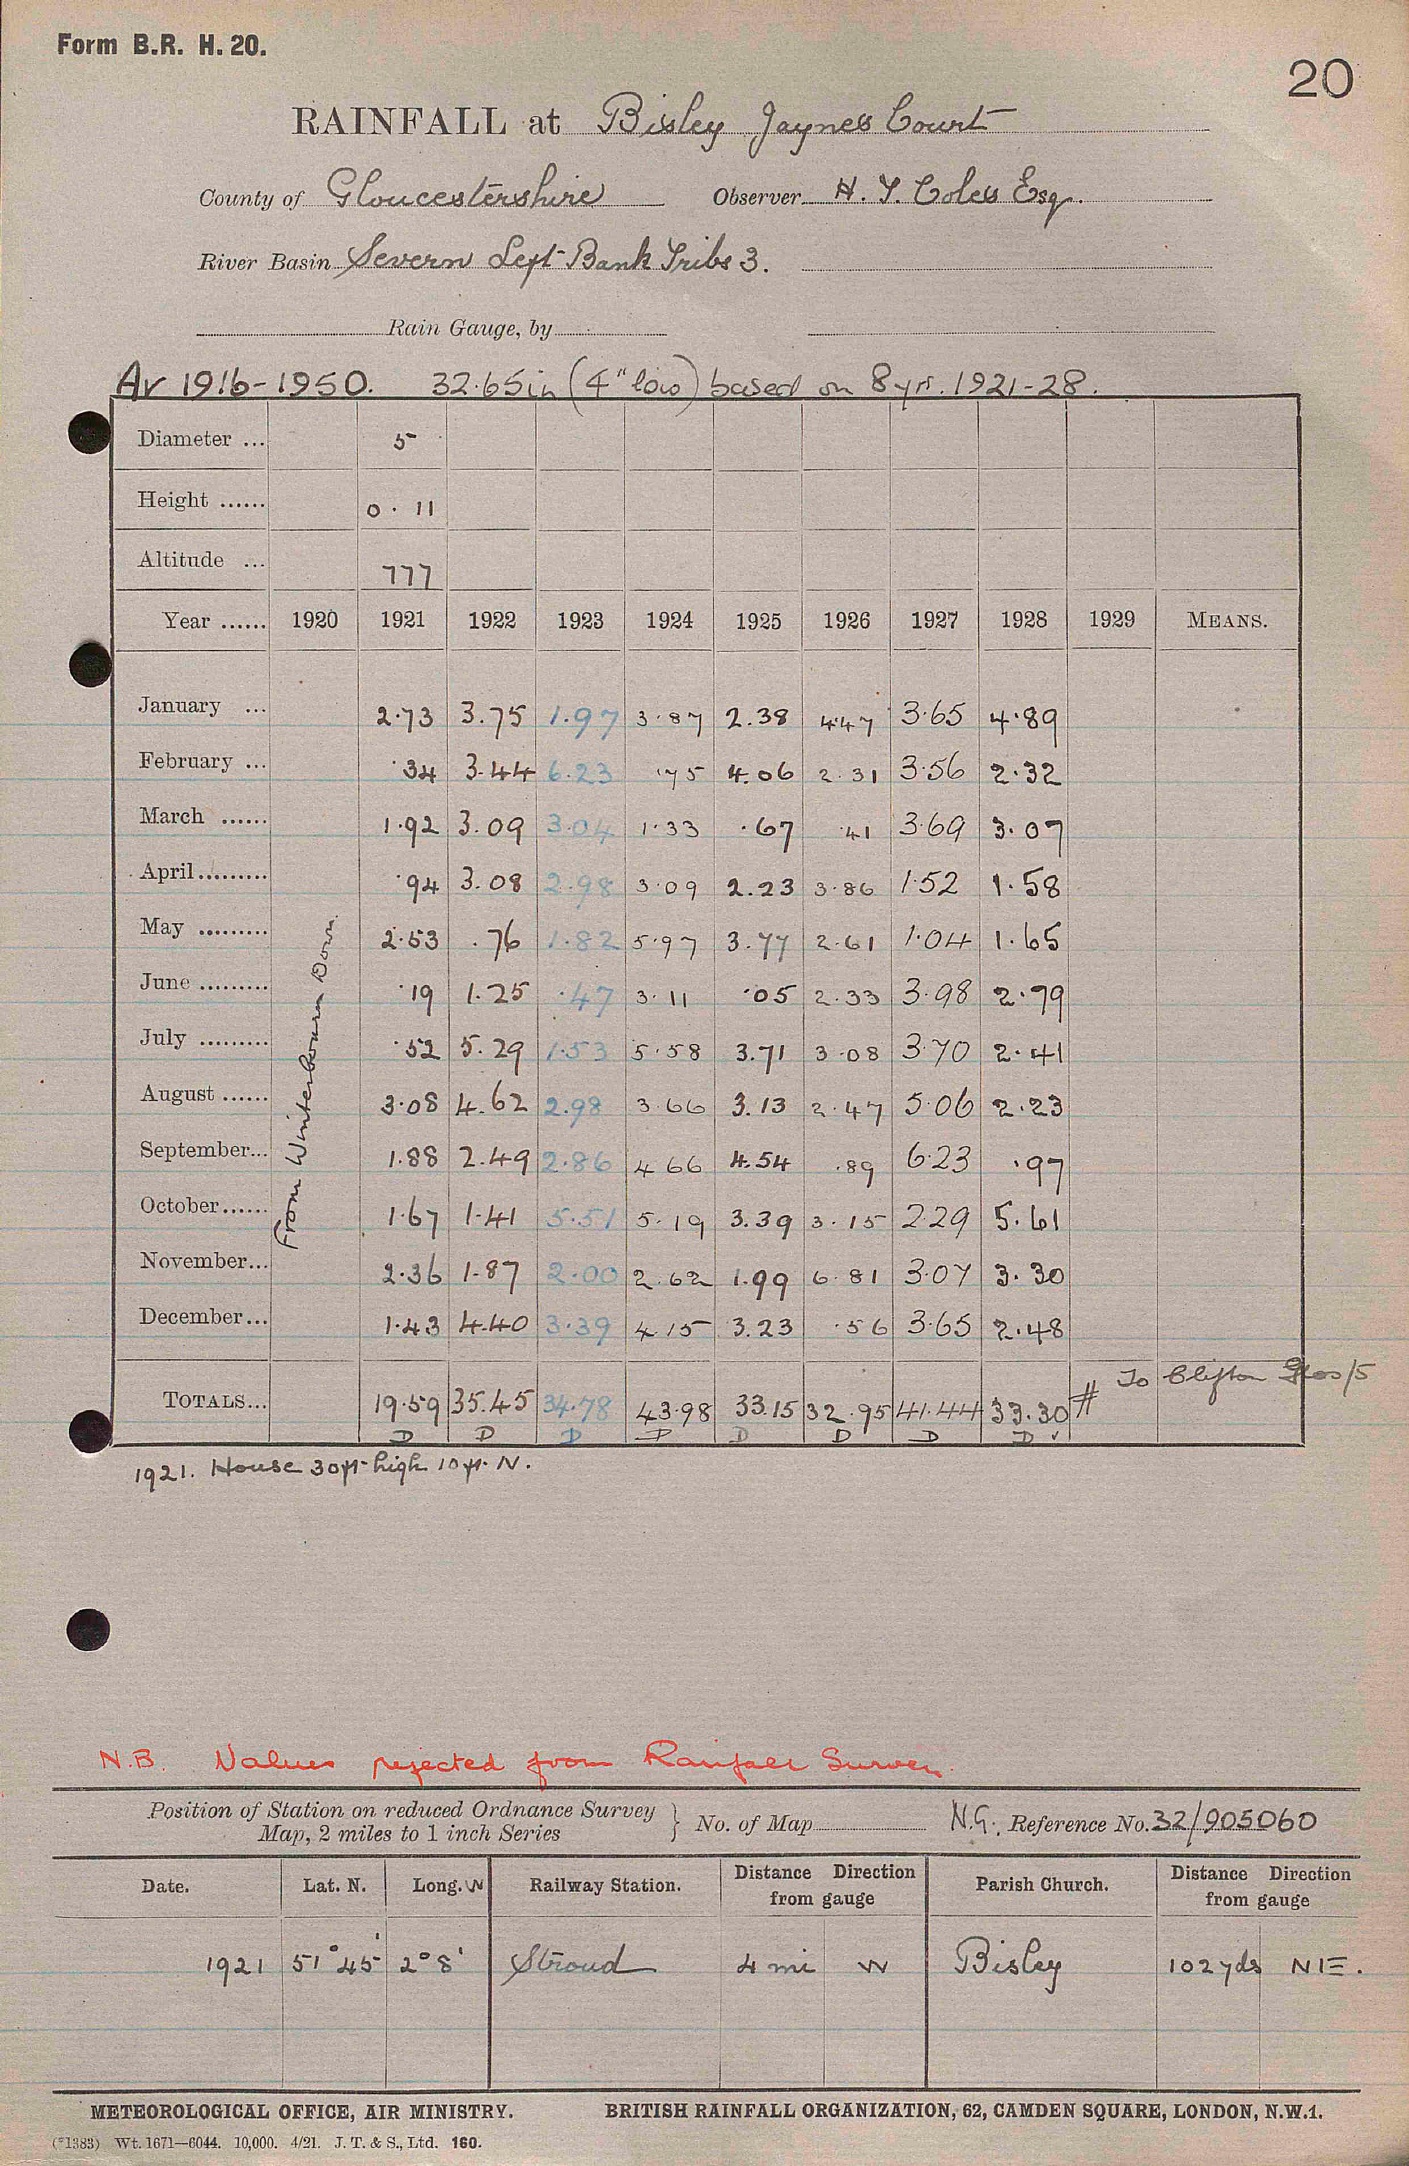 Form B.R. H. 20.
20
RAINFALL at Bisley Jaynes Court
County of Gloucestershire Observer H. T. Coles Esq.
River Basin Severn Left Bank Tribs 3.
Rain Gauge, by
Av 1916-1950. 32.65in (4" low) based on 8 yrs. 1921-28.
Diameter ... 5
Height ...... 0. 11
Altitude ... 777
Year ...... 1920 1921 1922 1923 1924 1925 1926 1927 1928 1929 MEANS.
January ... 2.73 3.75 1.97 3.87 2.38 4.47 3.65 4.89
February ... .34 3.44 6.23 .75 4.06 2.31 3.56 2.32
March ...... 1.92 3.09 3.04 1.33 .67 .41 3.69 3.07
April......... .94 3.08 2.98 3.09 2.23 3.86 1.52 1.58
May ......... 2.53 .76 1.82 5.97 3.77 2.61 1.04 1.65
June ......... .19 1.25 .47 3.11 .05 2.33 3.98 2.79
July ......... .52 5.29 1.53 5.58 3.71 3.08 3.70 2.41
August ...... 3.08 4.62 2.98 3.66 3.13 2.47 5.06 2.23
September... 1.88 2.49 2.86 4.66 4.54 .89 6.23 .97
October...... 1.67 1.41 5.51 5.19 3.39 3.15 2.29 5.61
November... 2.36 1.87 2.00 2.62 1.99 6.81 3.07 3.30
December... 1.43 4.40 3.39 4.15 3.23 .56 3.65 2.48
From Winterbourn Down
To Clifton Glos/5
TOTALS... 19.59 35.45 34.78 43.98 33.15 32.95 41.44 33.30 #
D D D D D D D D ✓
1921. House 30ft high 10ft N.
N.B. Values rejected from Rainfall Survey.
Position of Station on reduced Ordnance Survey
Map, 2 miles to 1 inch Series } No. of Map N.G. Reference No. 32/905060
Date. Lat. N. Long. W Railway Station. Distance Direction from gauge Parish Church. Distance Direction from gauge
1921 51° 45' 2° 8' Stroud 4 mi W Bisley 102 yds NE.
METEOROLOGICAL OFFICE, AIR MINISTRY. BRITISH RAINFALL ORGANIZATION, 62, CAMDEN SQUARE, LONDON, N.W.1.
(*1383) Wt. 1671—6044. 10,000. 4/21. J. T. & S., Ltd. 160.